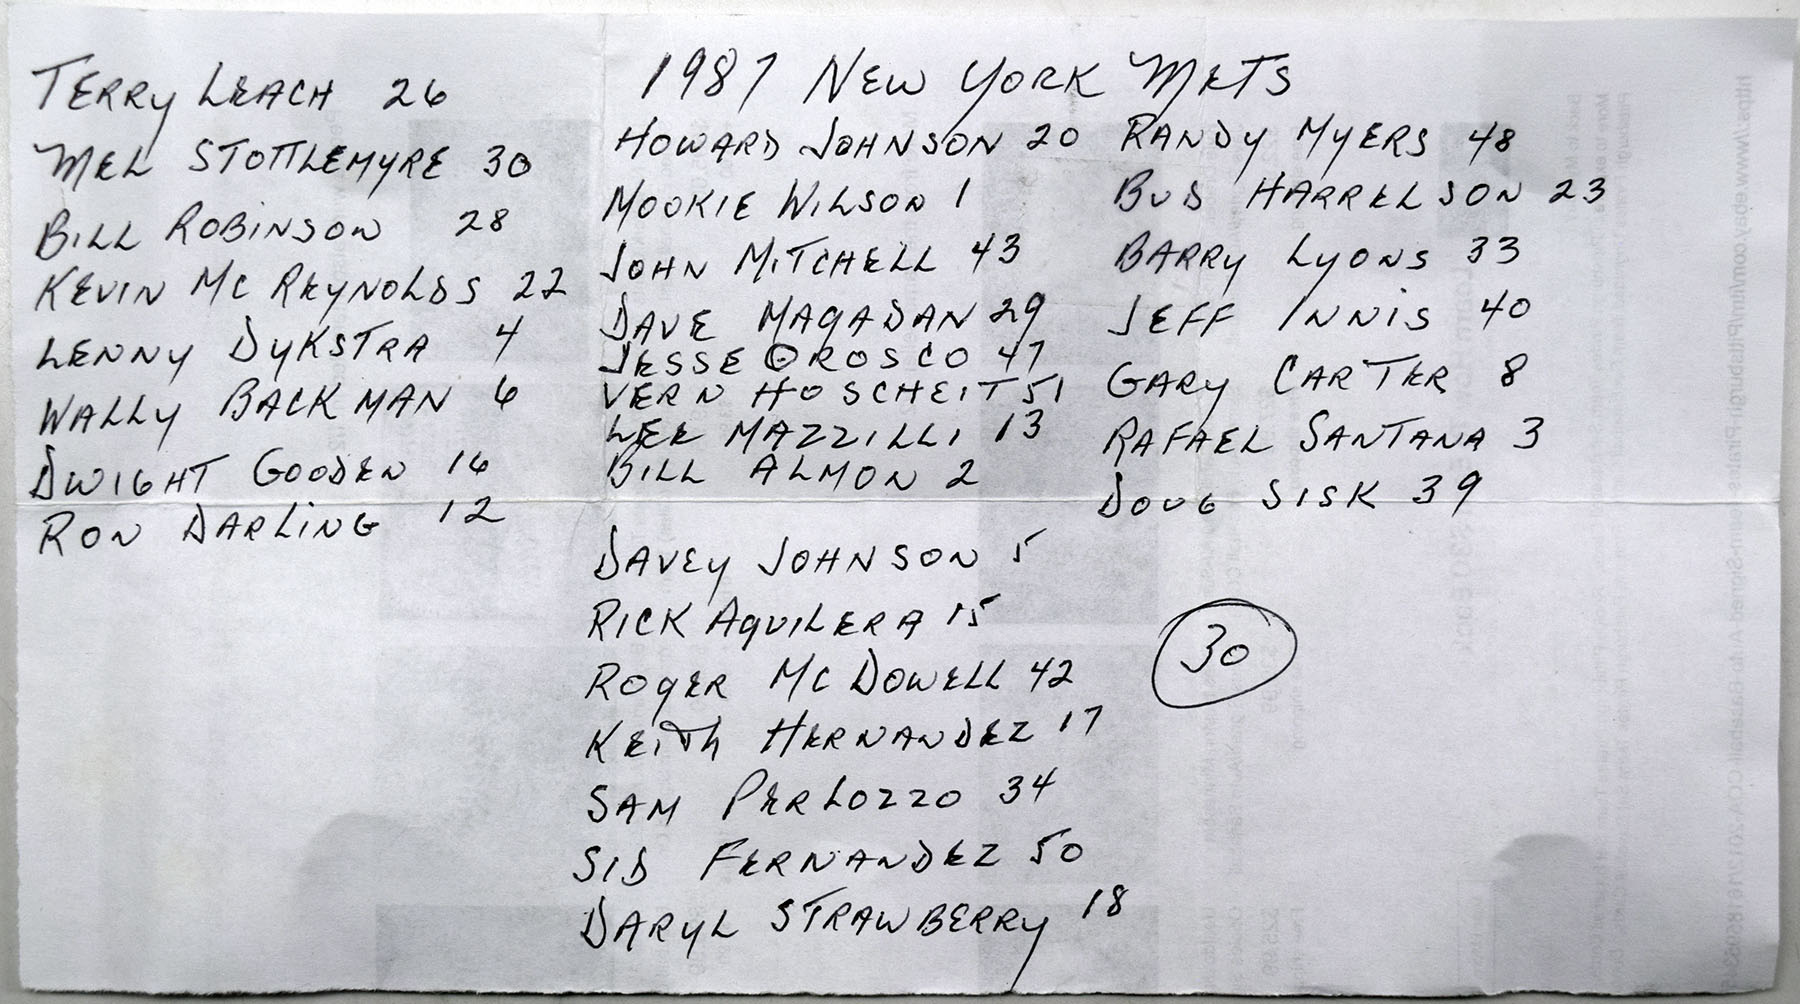 1987 NEW YORK METS
TERRY LEACH 26
MEL STOTTLEMYRE 30
BILL ROBINSON 28
KEVIN MC REYNOLDS 22
LENNY DYKSTRA 4
WALLY BACKMAN 6
DWIGHT GOODEN 16
RON DARLING 12
HOWARD JOHNSON 20
MOOKIE WILSON 1
JOHN MITCHELL 43
DAVE MAGADAN 29
JESSE OROSCO 47
VERN HOSCHEIT 51
LEE MAZZILLI 13
BILL ALMON 2
DAVEY JOHNSON 5
RICK AQUILERA 15
ROGER MC DOWELL 42
KEITH HERNANDEZ 17
SAM PERLOZZO 34
SID FERNANDEZ 50
DARYL STRAWBERRY 18
RANDY MYERS 48
BUD HARRELSON 23
BARRY LYONS 33
JEFF INNIS 40
GARY CARTER 8
RAFAEL SANTANA 3
DOUG SISK 39
30